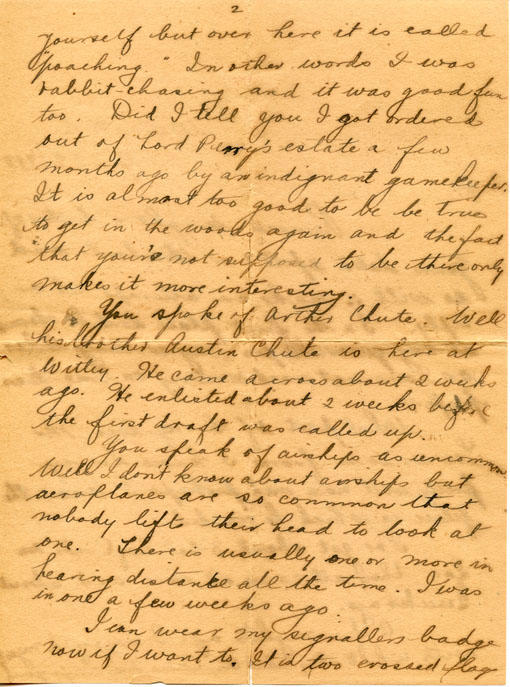 2
yourself but over here it is called
"poaching." In other words I was
rabbit-chasing and it was good fun
too. Did I tell you I got ordered
out of Lord Perry's estate a few
months ago by an indignant gamekeeper.
It is almost too good to be be true
to get in the woods again and the fact
that your's not supposed to be there only
makes it more interesting.
You spoke of Arther Chute. Well
his brother Austin Chute is here at
Witley. He came across about 2 weeks
ago. He enlisted about 2 weeks before
the first draft was called up.
You speak of airships as uncommon
Well I don't know about airships but
aeroplanes are so common that
nobody lift their head to look at
one. There is usually one or more in
hearing distance all the time. I was
in one a few weeks ago.
I can wear my signallers badge
now if I want to. It is two crossed flag